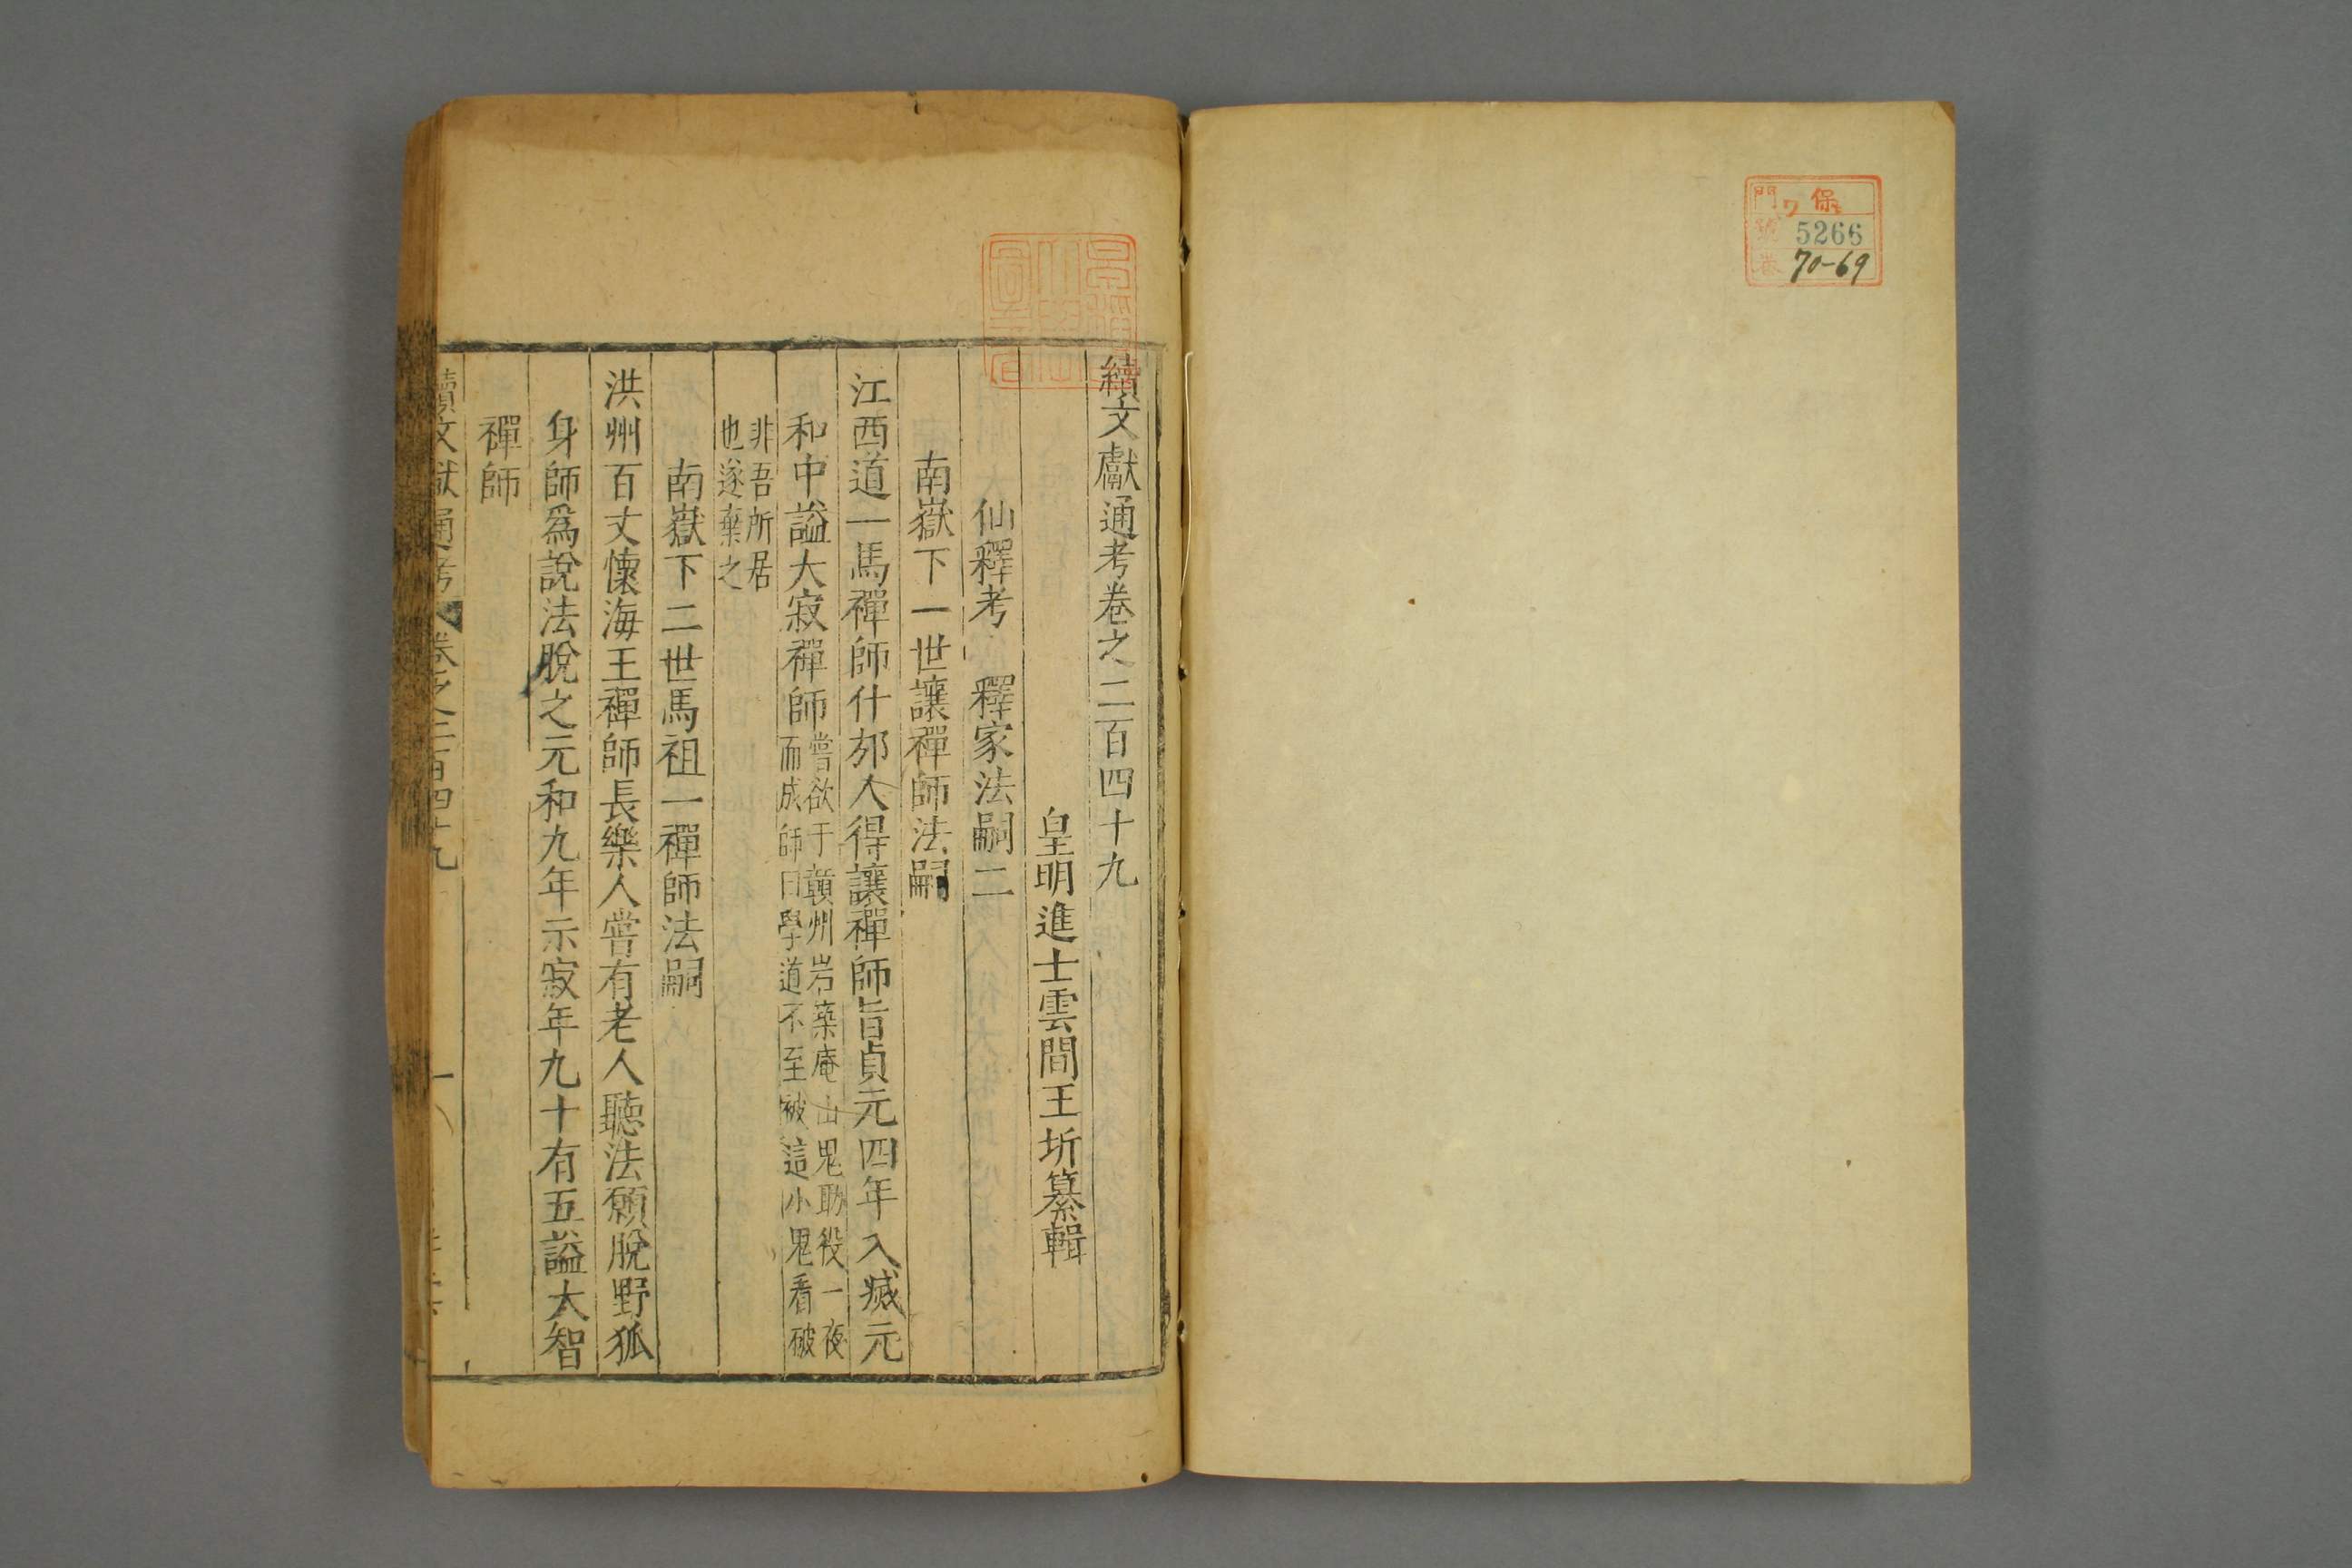 門 ワ 保
號 5266
卷 70-69
續文獻通考卷之二百四十九
皇明進士雲間王圻纂輯
仙釋考 釋家法嗣二
南嶽下一世讓禪師法嗣
江西道一馬禪師什邡人得讓禪師旨貞元四年入滅元
和中謚大寂禪師
嘗欲于贛州岩藥庵山鬼助役一夜
而成師曰學道不至被這小鬼看破
非吾所居
也遂棄之
南嶽下二世馬祖一禪師法嗣
洪州百丈懷海王禪師長樂人嘗有老人聽法願脫野狐
身師爲說法脫之元和九年示寂年九十有五謚大智
禪師
續文獻通考 卷之二百四十九 一